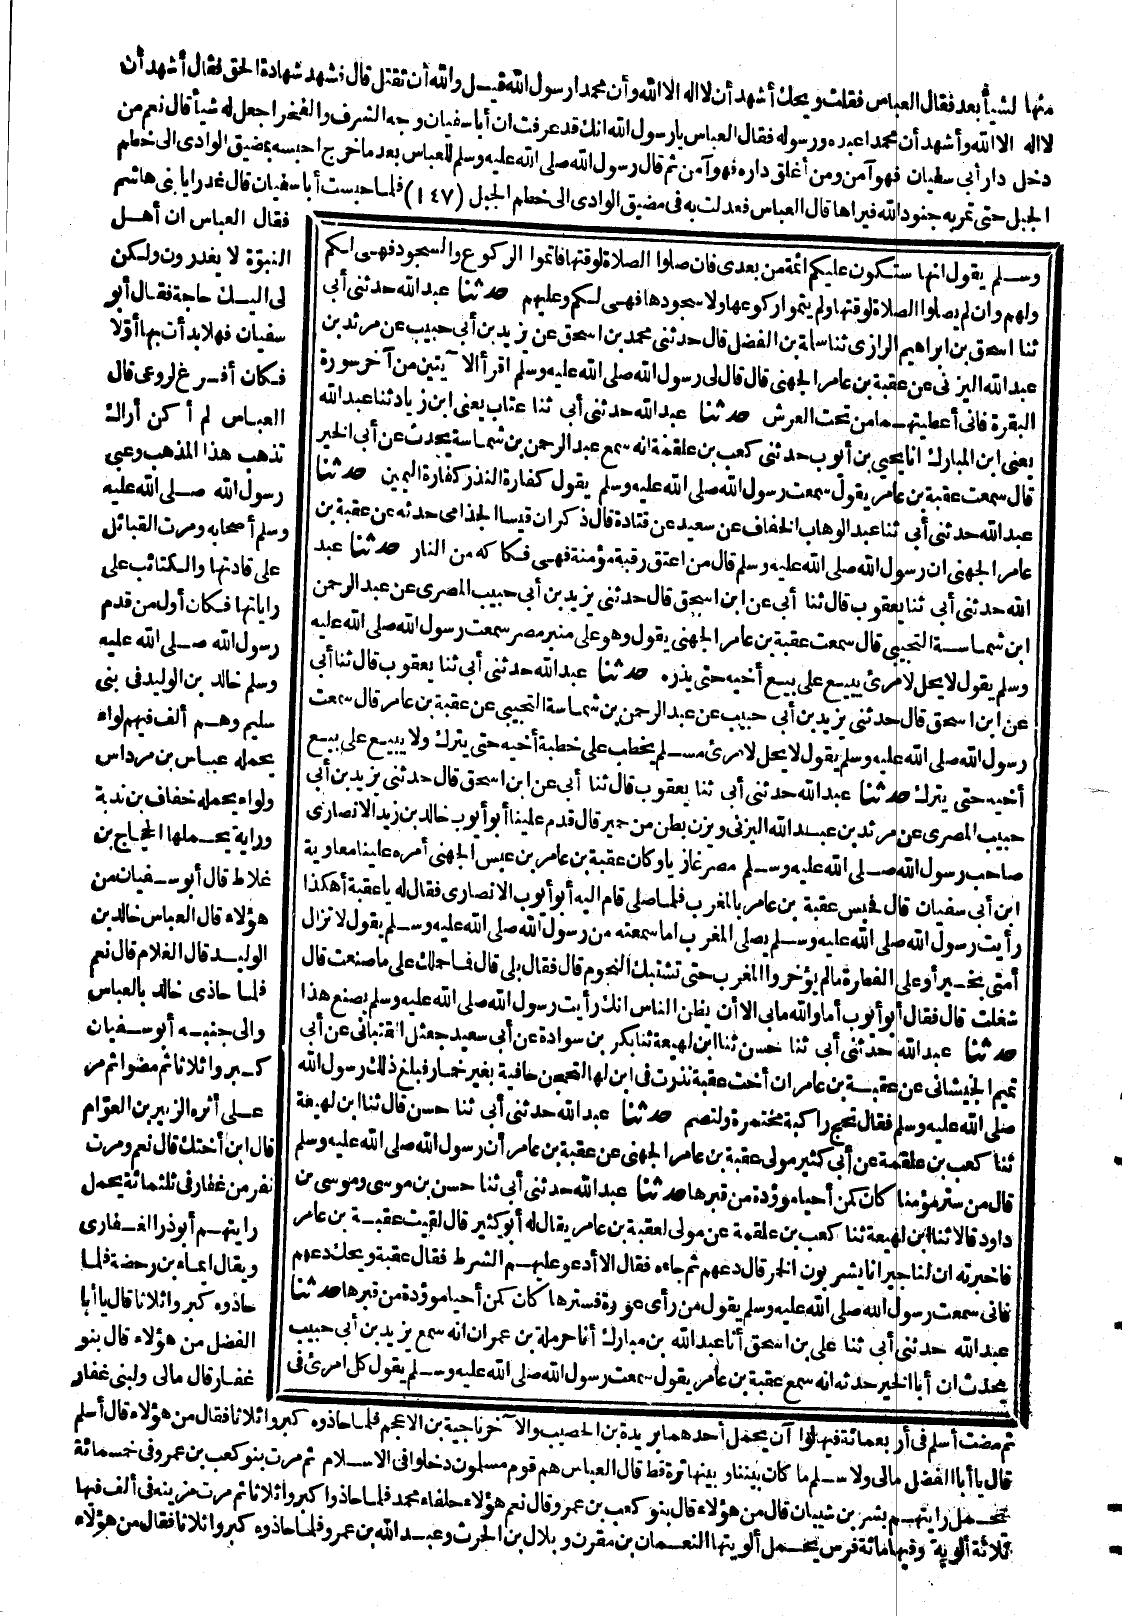 منها لشيأ بعد فقال العباس فقلت ويحك أشهد أن لا اله الا الله وأن محمدا رسول الله قبل والله أن تقتل قال فشهد شهادة الحق فقال أشهد أن
لا اله الا الله وأشهد أن محمدا عبده ورسوله فقال العباس يا رسول الله انك قد عرفت ان أبا سفيان وحبه الشرف والفخر اجعل له شيأ قال نعم من
دخل دار أبي سفيان فهو آمن ومن أغلق داره فهو آمن ثم قال رسول الله صلى الله عليه وسلم للعباس بعد ما خرج احبسه بمضيق الوادى الى خطم
الجبل حتى تمر به جنود الله فيراها قال العباس فعدلت به في مضيق الوادى الى خطم الجبل (١٤٧) فلما حبست أبا سفيان قال غدرا يا بنى هاشم
فقال العباس ان أهل
النبوة لا يغدرون ولكن
لى اليك حاجة فقال أبو
سفيان فهلا بدأت بها أولا
فكان أفرغ لروعى قال
العباس لم أكن أراك
تذهب هذا المذهب وعبى
رسول الله صلى الله عليه
وسلم أصحابه ومرت القبائل
على قادتها والكتائب على
راياتها فكان أول من قدم
رسول الله صلى الله عليه
وسلم خالد بن الوليد فى بنى
سليم وهم ألف فيهم لواء
يحمله عباس بن مرداس
ولواء يحمله خفاف بن ندبة
وراية يحملها الحجاج بن
غلاط قال أبو سفيان من
هؤلاء قال العباس خالد بن
الوليد قال الغلام قال نعم
فلما حاذى خالد بالعباس
والى جنبه أبو سفيان
كبروا ثلاثا ثم مضوا ثم مر
على أثره الزبير بن العوام
قال ابن أختك قال نعم ومرت
نفر من غفار فى ثلثمائة يحمل
رايتهم أبو ذر الغفارى
ويقال ايماء بن رحضة فلما
حاذوه كبروا ثلاثا قال يا أبا
الفضل من هؤلاء قال بنو
غفار قال مالى ولبنى غفار
وسلم يقول انها ستكون عليكم ائمة من بعدى فان صلوا الصلاة لوقتها فاتموا الركوع والسجود فهى لكم
ولهم وان لم يصلوا الصلاة لوقتها ولم يتموا ركوعها ولا سجودها فهى لكم وعليهم حدثنا عبد الله حدثنى أبى
ثنا اسحق بن ابراهيم الرازى ثنا سلمة بن الفضل قال حدثنى محمد بن اسحق عن يزيد بن أبى حبيب عن مرثد بن
عبد الله اليزنى عن عقبة بن عامر الجهنى قال قال لى رسول الله صلى الله عليه وسلم اقرأ الآيتين من آخر سورة
البقرة فانى أعطيتهما من تحت العرش حدثنا عبد الله حدثنى أبى ثنا عتاب يعنى ابن زياد ثنا عبد الله
يعنى ابن المبارك انا يحيى بن أيوب حدثنى كعب بن علقمة انه سمع عبد الرحمن بن شماسة يحدث عن أبى الخير
قال سمعت عقبة بن عامر يقول سمعت رسول الله صلى الله عليه وسلم يقول كفارة النذر كفارة اليمين حدثنا
عبد الله حدثنى أبى ثنا عبد الوهاب الخفاف عن سعيد عن قتادة قال ذكر ان قيسا الجذامى حدثه عن عقبة بن
عامر الجهنى ان رسول الله صلى الله عليه وسلم قال من اعتق رقبة مؤمنة فهى فكاكه من النار حدثنا عبد
الله حدثنى أبى ثنا يعقوب قال ثنا أبى عن ابن اسحق قال حدثنى يزيد بن أبى حبيب المصرى عن عبد الرحمن
ابن شماسة التجيبى قال سمعت عقبة بن عامر الجهنى يقول وهو على منبر مصر سمعت رسول الله صلى الله عليه
وسلم يقول لا يحل لامرئ يبيع على بيع أخيه حتى يذره حدثنا عبد الله حدثنى أبى ثنا يعقوب قال ثنا أبى
عن ابن اسحق قال حدثنى يزيد بن أبى حبيب عن عبد الرحمن بن شماسة التجيبى عن عقبة بن عامر قال سمعت
رسول الله صلى الله عليه وسلم يقول لا يحل لامرئ مسلم يخطب على خطبة أخيه حتى يترك ولا يبيع على بيع
أخيه حتى يترك حدثنا عبد الله حدثنى أبى ثنا يعقوب قال ثنا أبى عن ابن اسحق قال حدثنى يزيد بن أبى
حبيب المصرى عن مرثد بن عبد الله اليزنى ويزن بطن من حمير قال قدم علينا أبو أيوب خالد بن زيد الانصارى
صاحب رسول الله صلى الله عليه وسلم مصر غازيا وكان عقبة بن عامر بن عبس الجهنى أمره علينا معاوية
ابن أبى سفيان قال فحبس عقبة بن عامر بالمغرب فلما صلى قام اليه أبو أيوب الانصارى فقال له يا عقبة أهكذا
رأيت رسول الله صلى الله عليه وسلم يصلى المغرب اما سمعته من رسول الله صلى الله عليه وسلم يقول لا تزال
أمتى بخير أو على الفطرة ما لم يؤخروا المغرب حتى تشتبك النجوم قال فقال بلى قال فما حملك على ما صنعت قال
شغلت قال فقال أبو أيوب أما والله ما بى الا أن يظن الناس انك رأيت رسول الله صلى الله عليه وسلم يصنع هذا
حدثنا عبد الله حدثنى أبى ثنا حسن ثنا ابن لهيعة ثنا بكر بن سوادة عن أبى سعيد جعثل القتبانى عن أبى
تميم الجيشانى عن عقبة بن عامر ان أخت عقبة نذرت فى ابن لها لتحجن حافية بغير خمار فبلغ ذلك رسول الله
صلى الله عليه وسلم فقال تحج راكبة مختمرة ولتصم حدثنا عبد الله حدثنى أبى ثنا حسن قال ثنا ابن لهيعة
ثنا كعب بن علقمة عن أبى كثير مولى عقبة بن عامر الجهنى عن عقبة بن عامر أن رسول الله صلى الله عليه وسلم
قال من ستر مؤمنا كان كمن أحيا موؤدة من قبرها حدثنا عبد الله حدثنى أبى ثنا حسن بن موسى وموسى بن
داود قالا ثنا ابن لهيعة ثنا كعب بن علقمة عن مولى لعقبة بن عامر يقال له أبو كثير قال لقيت عقبة بن عامر
فاخبرته ان لنا جيرانا يشربون الخمر قال دعهم ثم جاءه فقال الا أدعو عليهم الشرط فقال عقبة ويحك دعهم
فانى سمعت رسول الله صلى الله عليه وسلم يقول من رأى عورة فسترها كان كمن أحيا موؤدة من قبرها حدثنا
عبد الله حدثنى أبى ثنا على بن اسحق أنا عبد الله بن مبارك أنا حرملة بن عمران انه سمع يزيد بن أبى حبيب
يحدث ان أبا الخير حدثه انه سمع عقبة بن عامر يقول سمعت رسول الله صلى الله عليه وسلم يقول كل امرئ فى
ثم مضت أسلم فى أربعمائة فيها لواآن يحمل أحدهما بريدة بن الحصيب والآخر ناجية بن الاعجم فلما حاذوه كبروا ثلاثا فقال من هؤلاء قال أسلم
قال يا أبا الفضل مالى ولاسلم ما كان بيننا وبينها ترة قط قال العباس هم قوم مسلمون دخلوا فى الاسلام ثم مرت بنو كعب بن عمرو فى خمسمائة
تحمل رايتهم بشر بن شيبان قال من هؤلاء قال بنو كعب بن عمرو قال نعم هؤلاء حلفاء محمد فلما حاذوا كبروا ثلاثا ثم مرت مزينه فى ألف فيها
ثلاثة ألوية وفيها مائة فرس يحمل ألويتها النعمان بن مقرن وبلال بن الحرث وعبد الله بن عمرو فلما حاذوه كبروا ثلاثا فقال من هؤلاء